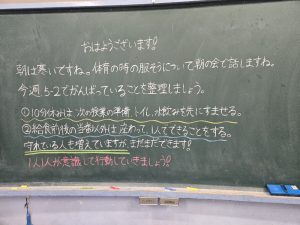 おはようございます!
朝は寒いですね。体育の時の服そうについて朝の会で話しますね。
今週5-2でがんばっていることを整理しましょう。
①10分休みは次の授業の準備、トイレ、水飲みを先にすませる。
②給食前後の当番以外は座わって、1人でできることをする。
守れている人も増えていますが、まだまだできます!
1人1人が意識して行動していきましょう!